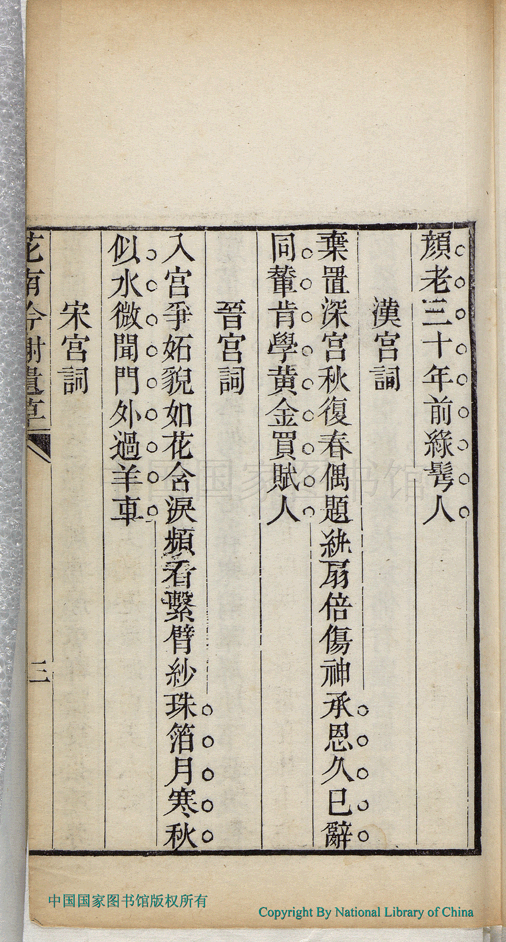 顏老三十年前綠鬢人
漢宮詞
棄置深宮秋復春偶題紈扇倍傷神承恩久已辭
同輦肯學黃金買賦人
晉宮詞
入宮爭妬貌如花含淚頻看繫臂紗珠箔月寒秋
似水微聞門外過羊車
宋宮詞
三
中国国家图书馆版权所有
Copyright By National Library of China